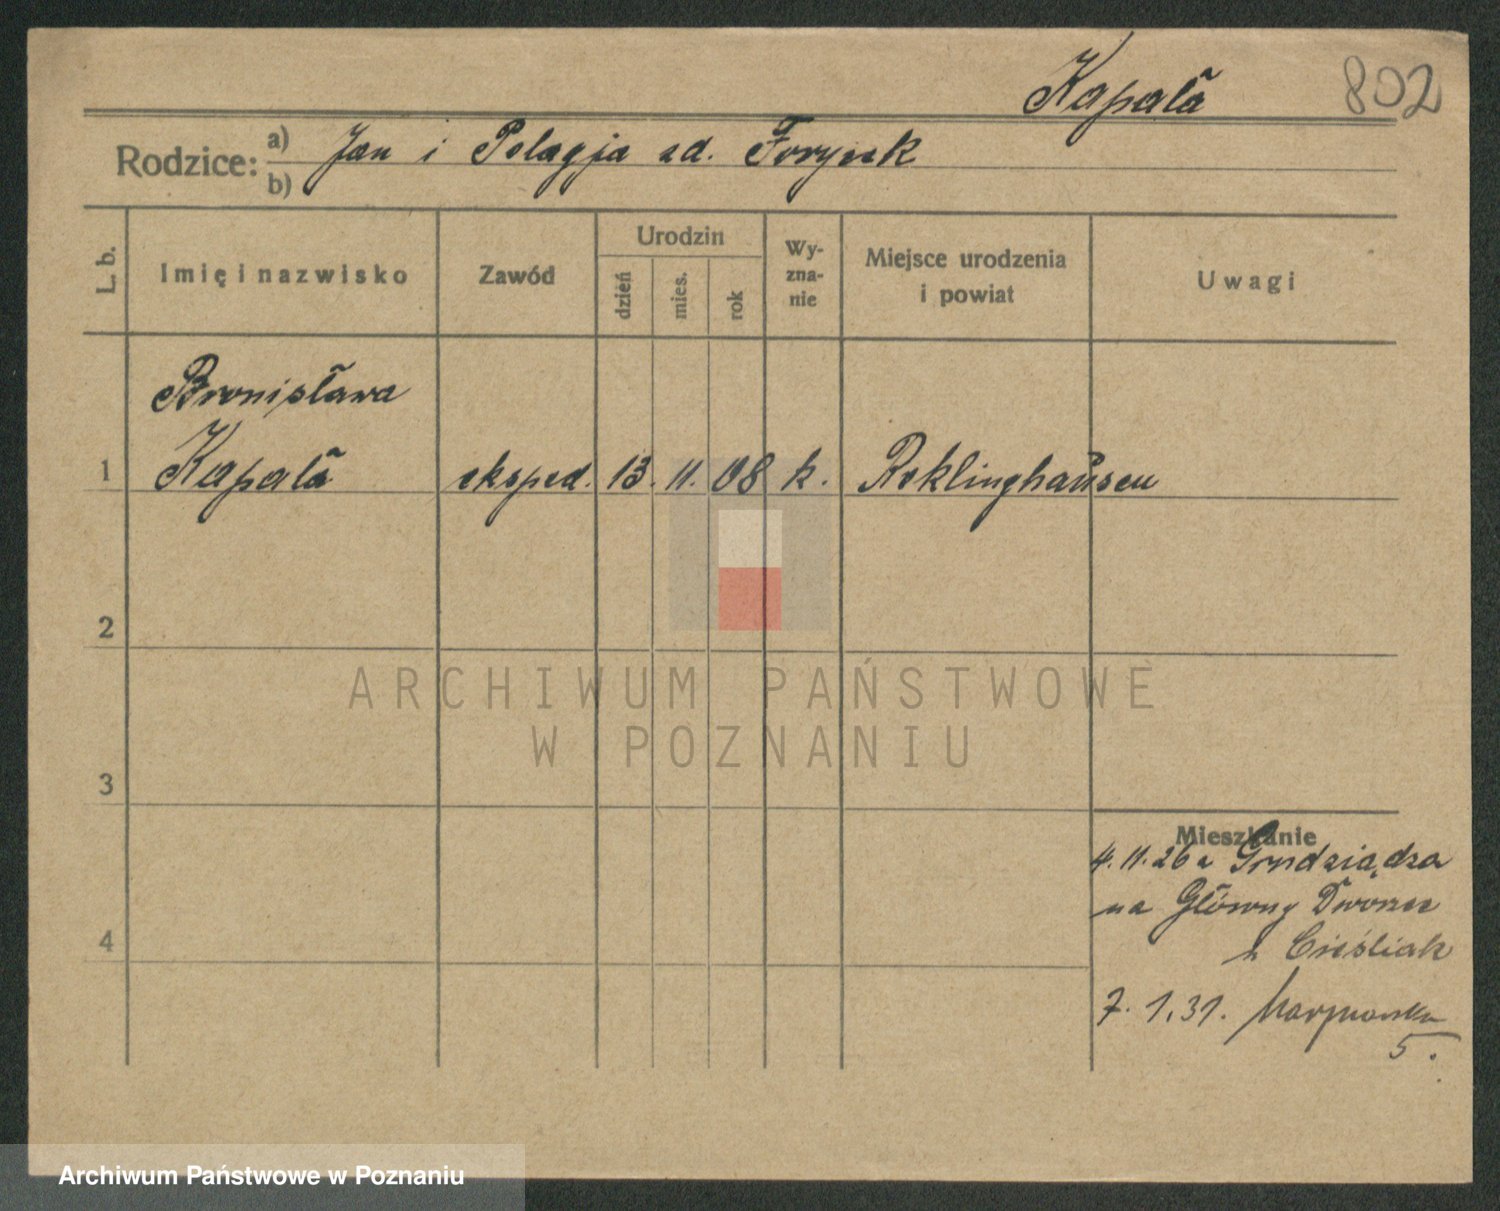 Kapała 802
Rodzice: a) Jan i Pelagja zd.
b)
L. b. Imię i nazwisko Zawód Urodzin dzień mies. rok Wy-zna-nie Miejsce urodzenia i powiat Uwagi
Bronisława
1 Kapała eksped. 13. 11. 08 k. Reklinghausen
2
ARCHIWUM PAŃSTWOWE
W POZNANIU
3
Mieszkanie
4. 11. 26 z Grudziądza
na Główny Dworzec
4 Cieśliak
7. 1. 31.
5.
Archiwum Państwowe w Poznaniu